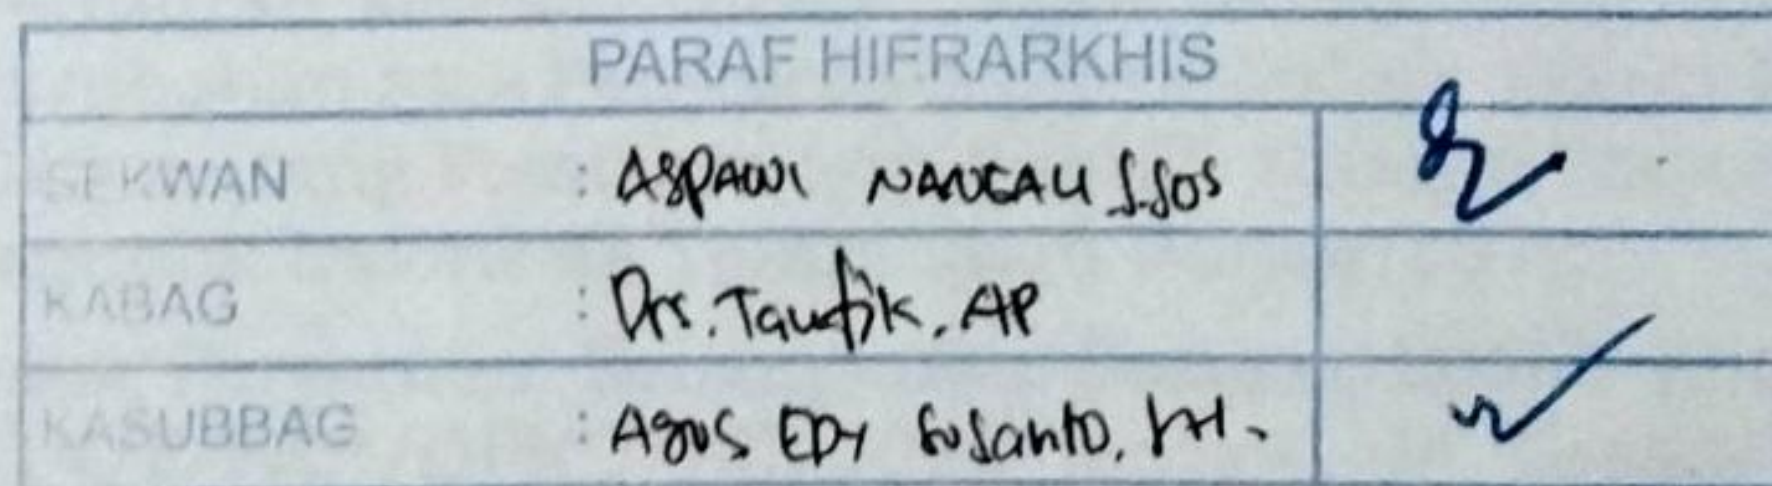 PARAF HIERARKHIS
SEKWAN : ASPAWI NANGALI S.SOS
KABAG : Drs. Taufik. AP
KASUBBAG : AGUS EDY SUSANTO, SH.